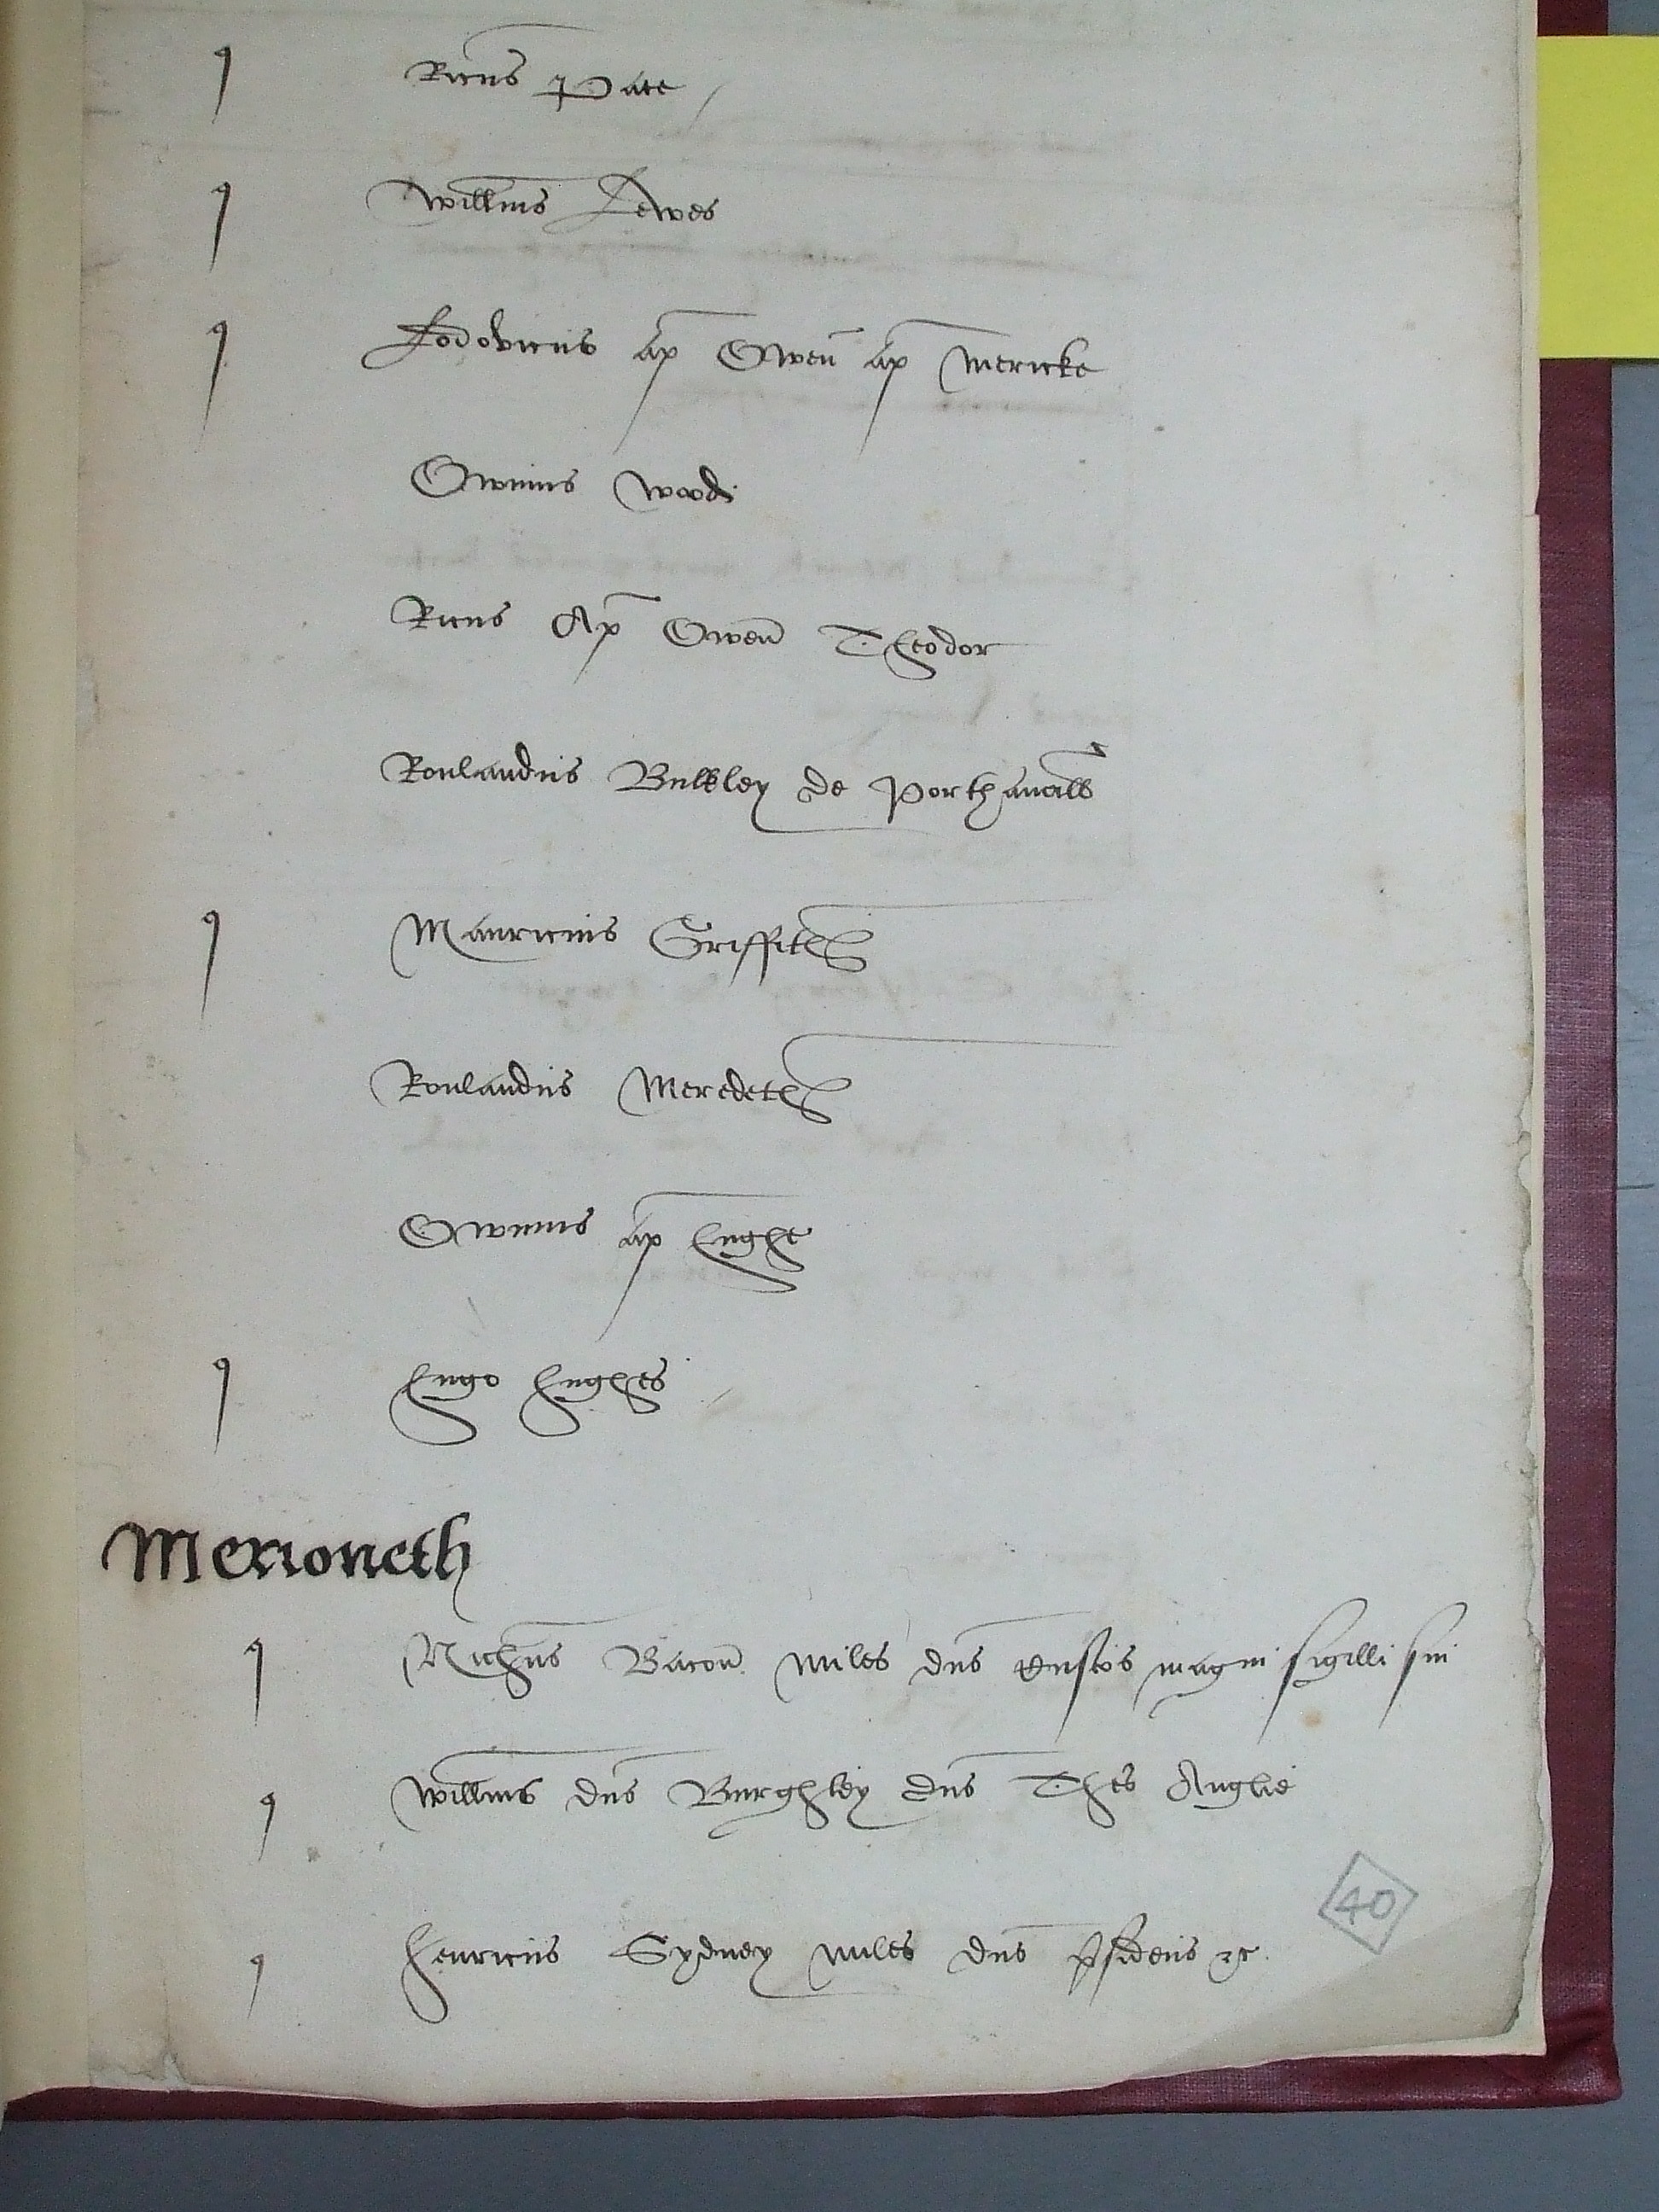 q Ricus Pate
q Willmus Lewes
q Lodovicus ap Owen ap Mericke
Owinus Wood
Ricus Ap Owen Theodor
Roulandus Bulkley de Porthamall
q Mauricius Griffith
Roulandus Meredeth
Owinus ap hughe
q Hugo Hughes
Merioneth
q Nichus Bacon miles dns Custos magni sigilli sui
q Willmus dns Burghley dns Thes Anglie
40
q Henricus Sydney miles dns Psidens &c.